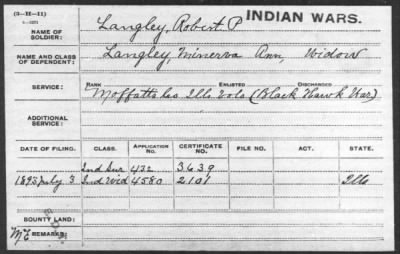 (3-H-11)
INDIAN WARS.
NAME OF SOLDIER: Langley, Robert P
NAME AND CLASS OF DEPENDENT: Langley, Minerva Ann, Widow
SERVICE: RANK ENLISTED DISCHARGED
Moffatts Co Ills. Vols (Black Hawk War)
ADDITIONAL SERVICE:
DATE OF FILING. CLASS. APPLICATION No. CERTIFICATE No. FILE No. ACT. STATE.
Ind Sur 432 3639
1893 July 3 Ind Wid 4580 2101 Ills
BOUNTY LAND:
REMARKS: